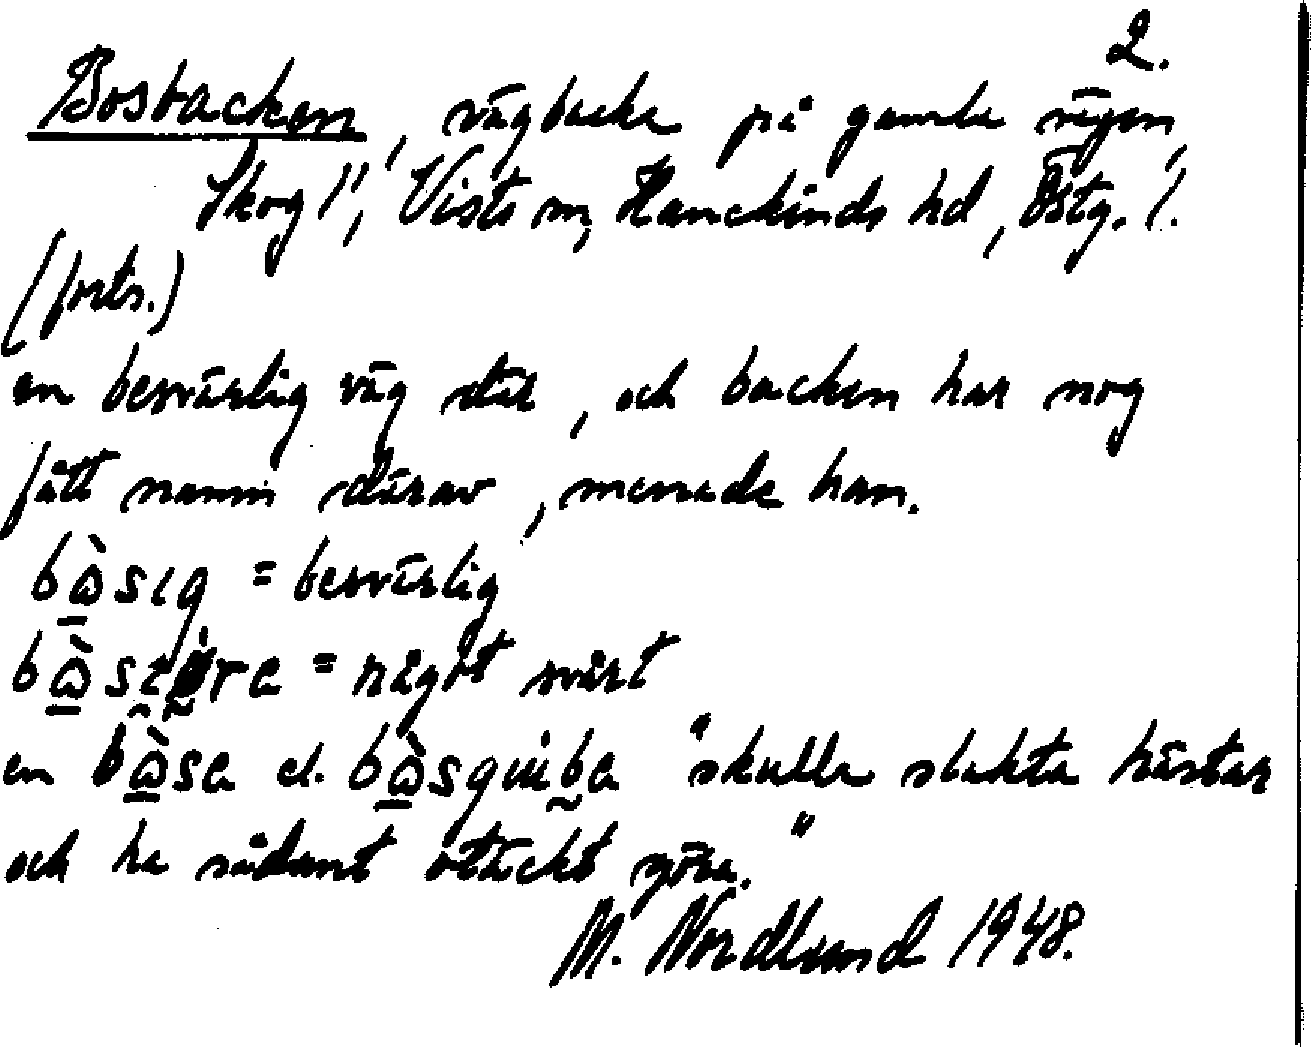 2.
Bosbacken, vägbacke på gamla vägen,
Skog 1", Vists sn, Hanekinds hd, Östg. l.
(forts.)
en besvärlig väg där, och backen har nog
fått namn därav, menade han.
bòsig = besvärlig
= något svårt
en bòsa el. "skulle slakta hästar
och ha sådant otäckt göra."
M. Nordlund 1948.